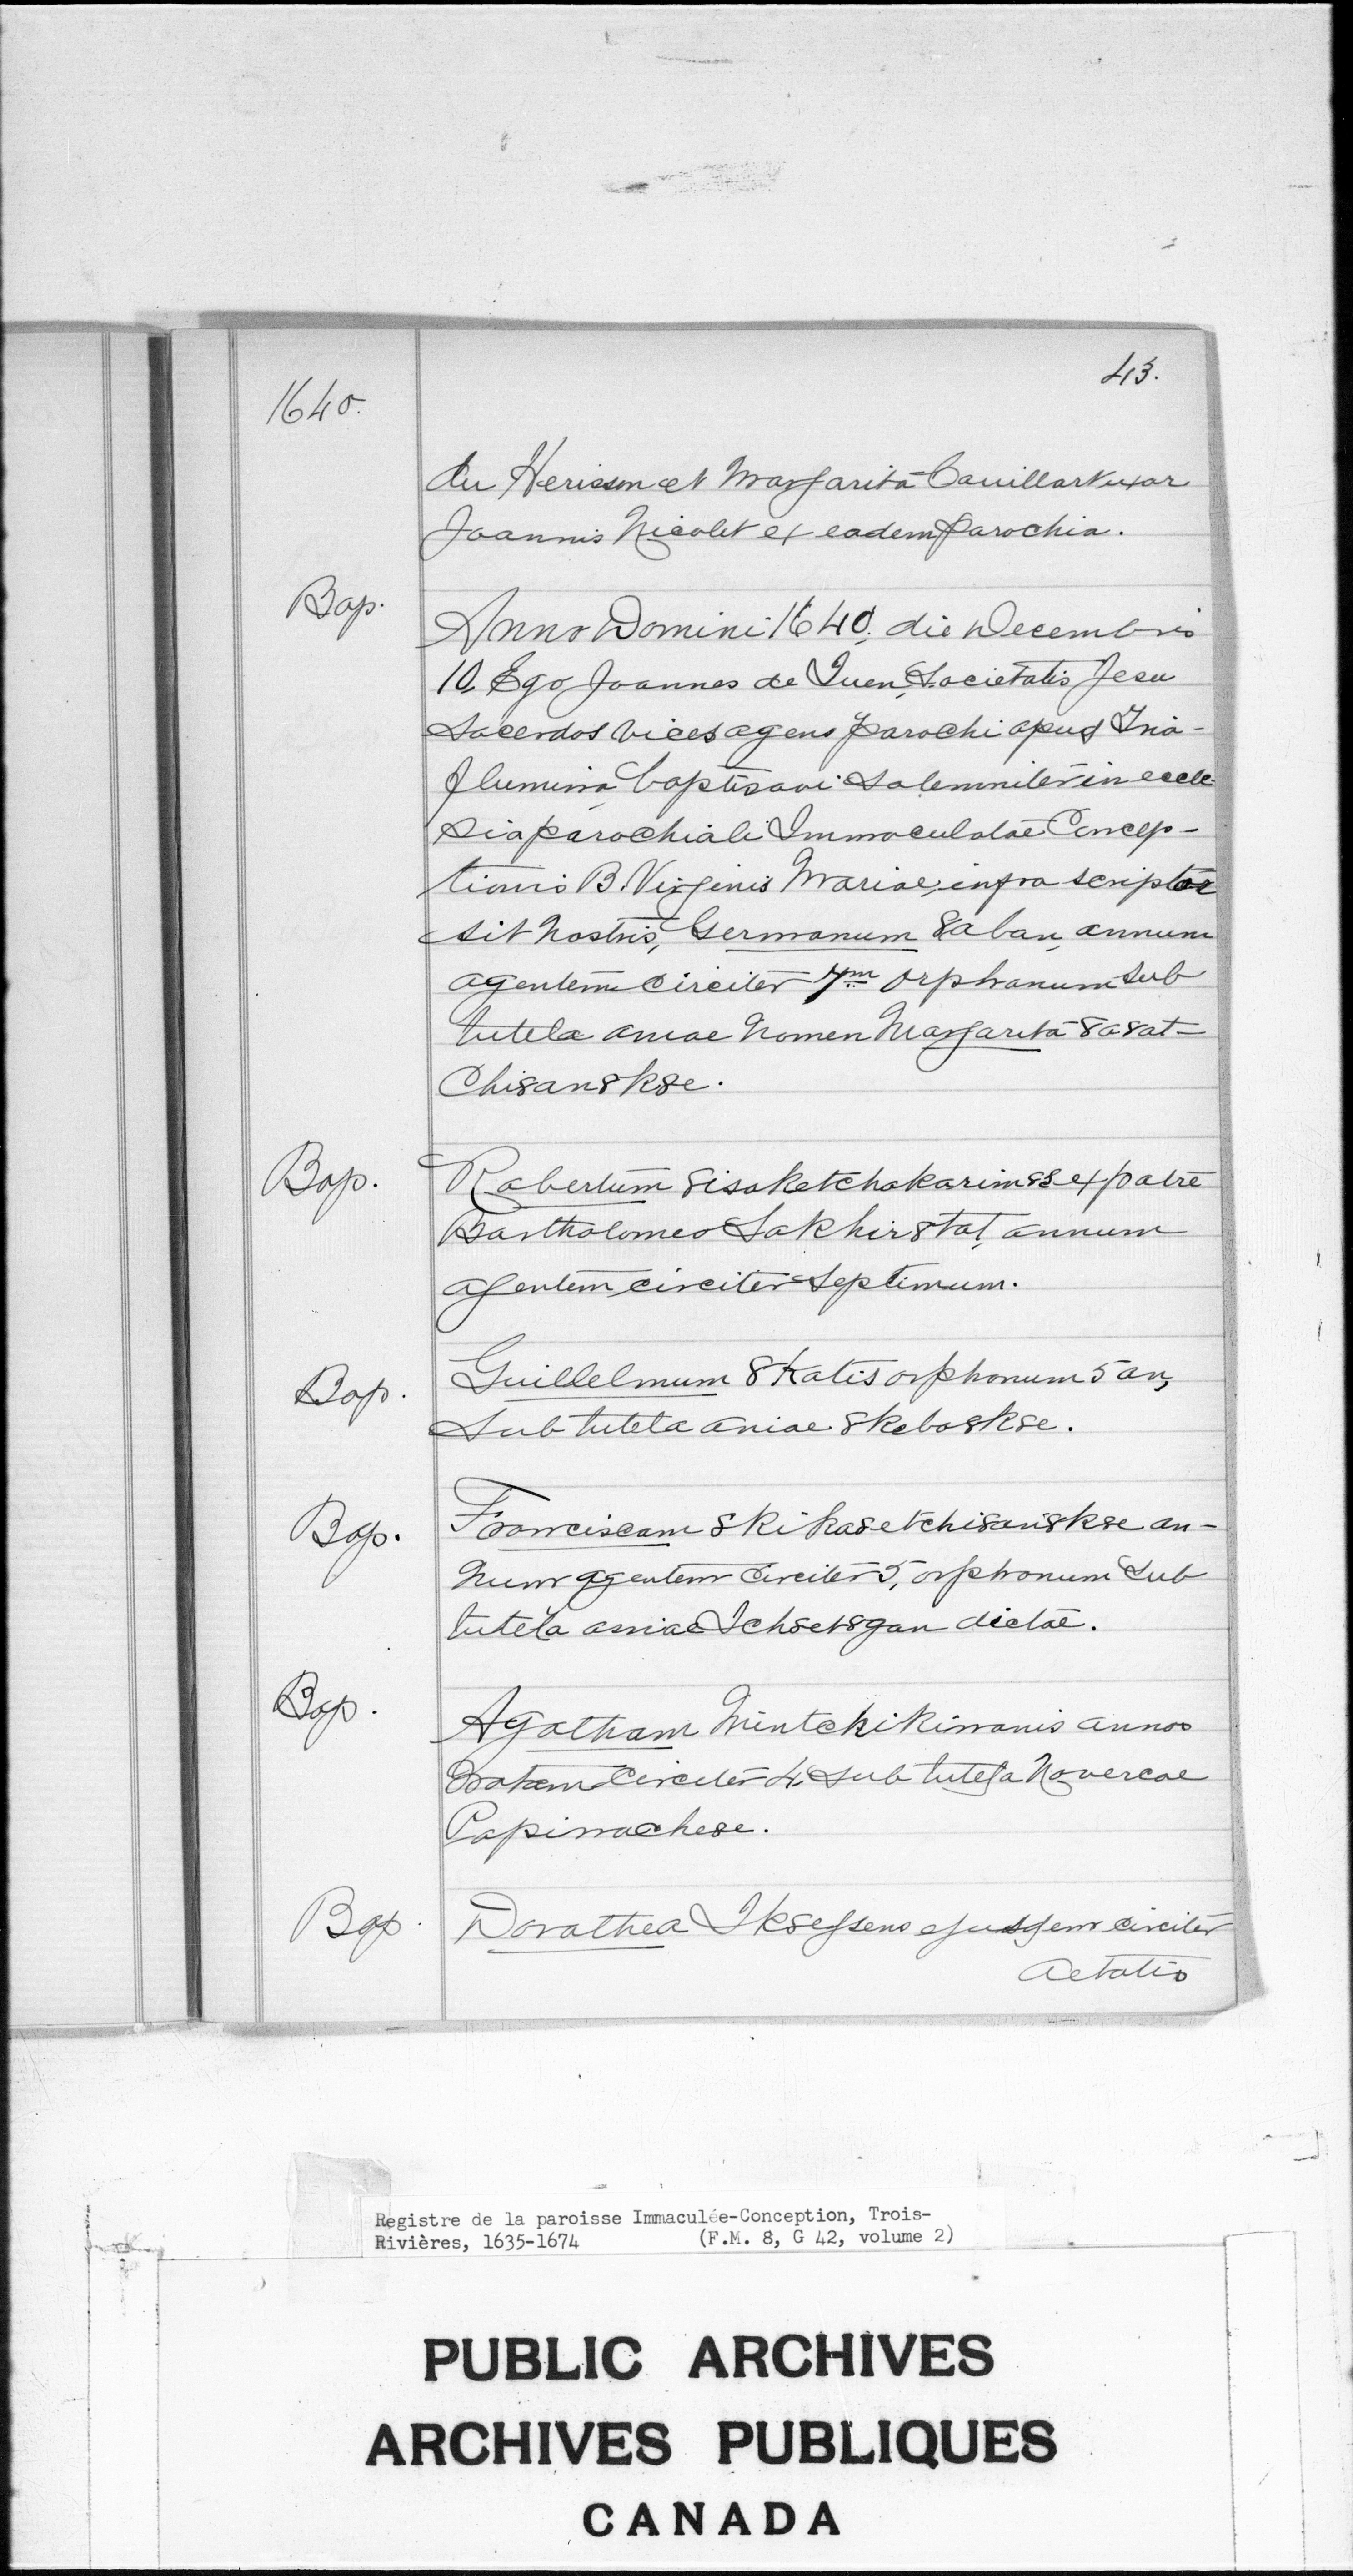 43.
1640.
du Herisson et Margarita Couillart uxor
Joannis Nicolet ex eadem parochia.
Bap.
Anno Domini 1640, die Decembris
10, Ego Joannes de Quen, Societatis Jesu
Sacerdos vices agens parochi apud Tria-
flumina, baptisavi solemniter in eccle-
sia parochiali Immaculatae Concep-
tionis B. Virginis Mariae, infra scriptos
sit nostris, Germanum 8aban, annum
agentem circiter 7m orphanum sub
tutela aniae nomen Margarita 8a8at-
chi8an8k8e.
Bap.
Robertum 8isaketchakarim88 ex patre
Bartholomeo Sakhir8tat, annum
agentem circiter septimum.
Bap.
Guillelmum 8katis orphanum 5 an,
sub tutela aniae 8keba8k8e.
Bap.
Franciscam 8kika8etchi8an8k8e an-
num agentem circiter 5, orphanum sub
tutela aniae Ich8et8gan dictae.
Bap.
Agatham Mintchikinanis annos
natam circiter 4, sub tutela novercae
Papinache8e.
Bap.
Dorathea ejusdem circiter
aetatis
Registre de la paroisse Immaculée-Conception, Trois-
Rivières, 1635-1674 (F.M. 8, G 42, volume 2)
PUBLIC ARCHIVES
ARCHIVES PUBLIQUES
CANADA